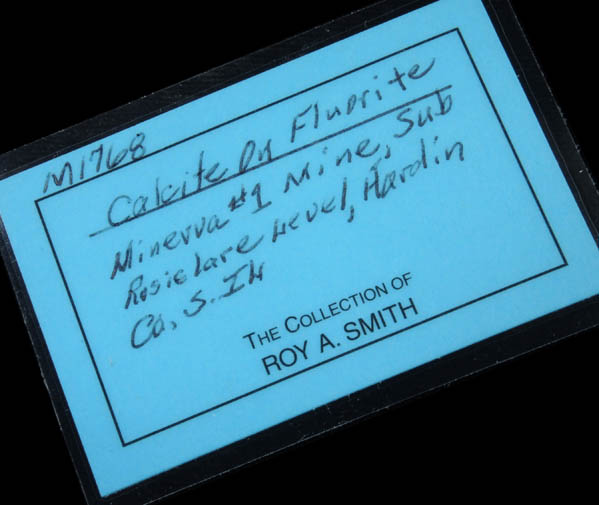 M1768
Calcite On Fluorite
Minerva #1 Mine, Sub
Rosiclare Level, Hardin
Co, S. Ill
THE COLLECTION OF
ROY A. SMITH